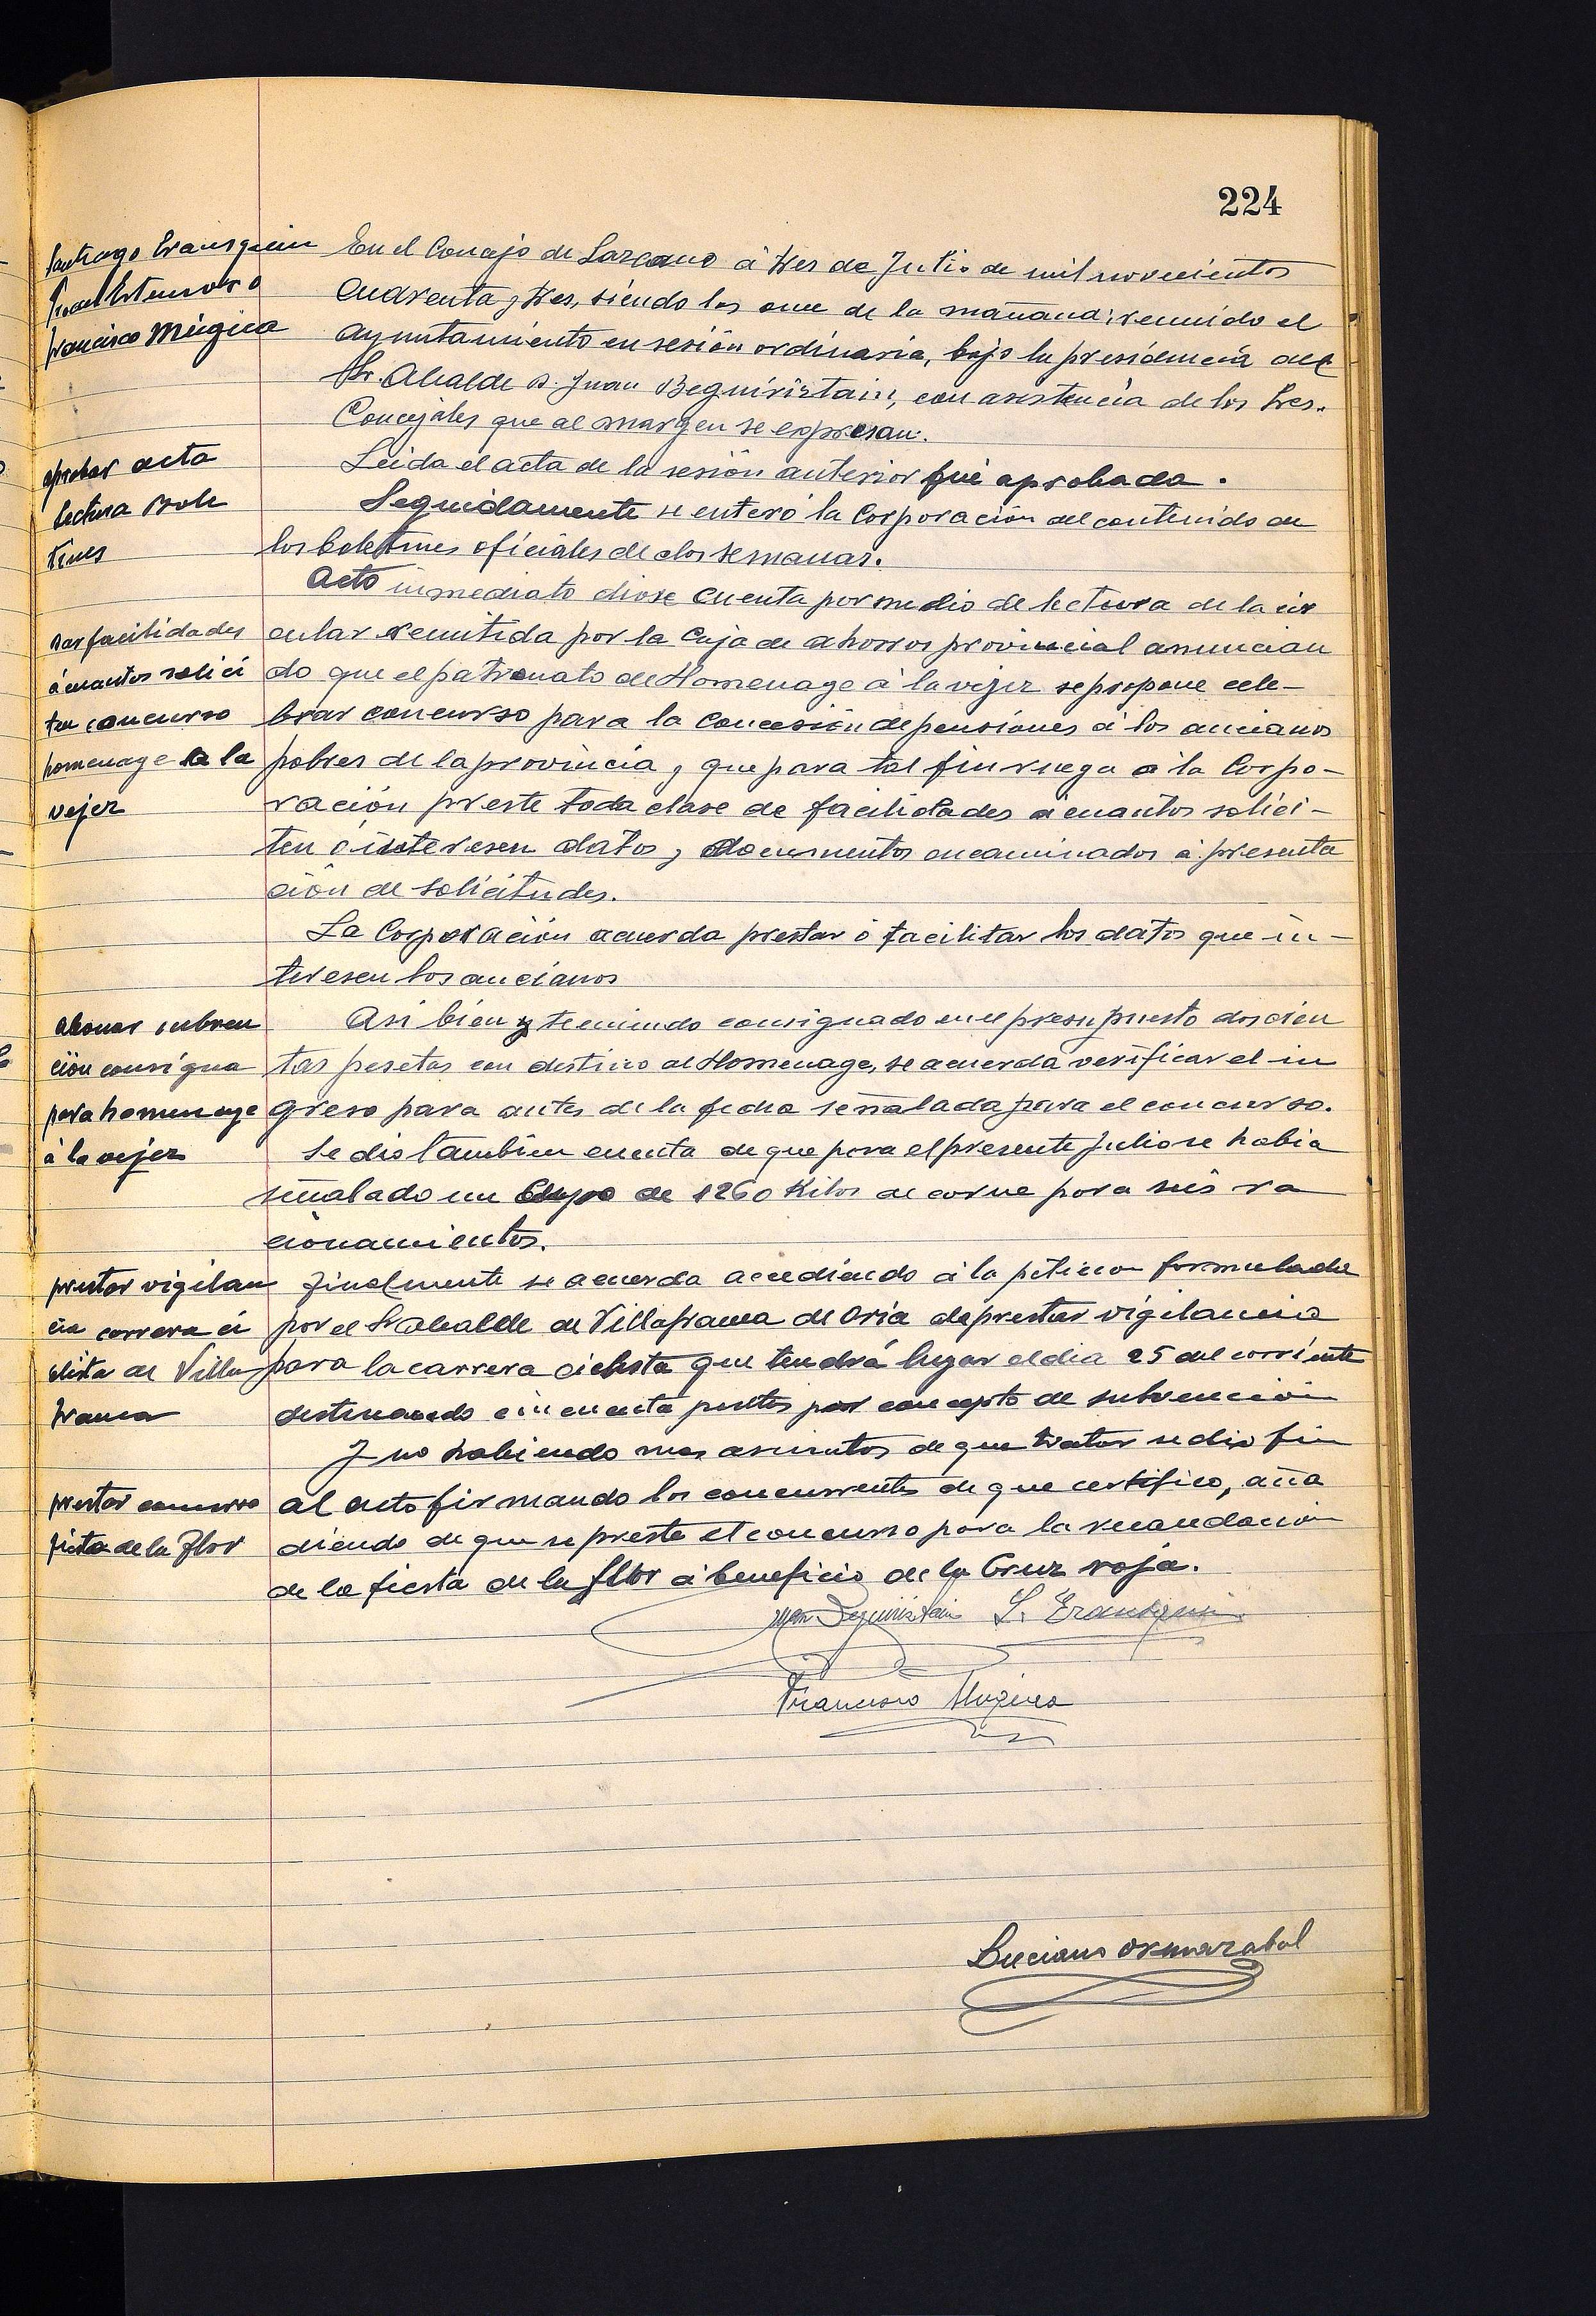 224
Santiago Irausquin
Francisco Múgica
En el Concejo de Lazcano á tres de Julio de mil novecientos
cuarenta y tres, siendo las once de la mañana; reunido el
Ayuntamiento en sesión ordinaria, bajo la presidencia del
Sr. Alcalde D. Juan Beguiristain, con asistencia de los Sres.
Concejales que al margen se expresan.
aprobar acta
Leida el acta de la sesión anterior fué aprobada.
lectura Bole
tines
Seguidamente se enteró la Corporación del contenido de
los boletines oficiales de dos semanas.
Acto inmediato diose cuenta por medio de lectura de la cir
dar facilidades
á cuantos solici
ten concurso
homenage a la
vejez
cular remitida por la Caja de ahorros provincial anuncian
do que el patronato de Homenage á la vejez se propone cele-
brar concurso para la concesión de pensiones á los ancianos
pobres de la provincia, y que para tal fin ruega a la Corpo-
ración preste toda clase de facilidades a cuantos solici-
ten ó interesen datos y documentos encaminados á presenta
ción de solicitudes.
La Corporación acuerda prestar ó facilitar los datos que in-
teresen los ancianos
abonar subven
ción consigna
para homenage
á la vejez
Asi bien y teniendo consignado en el presupuesto doscien
tas pesetas con destino al Homenage, se acuerda verificar el in
greso para antes de la fecha señalada para el concurso.
Se dio tambien cuenta de que para el presente Julio se habia
señalado un Cupo de 1260 Kilos de carne para sus ra
cionamientos.
prestar vigilan
cia carrera ci
clista de Villa
franca
Finalmente se acuerda accediendo á la peticion formulada
por el Sr Alcalde de Villafranca de Oria de prestar vigilancia
para la carrera ciclista que tendrá lugar el dia 25 del corriente
destinando cincuenta pesetas por concepto de subvención
Y no habiendo mas asuntos de que tratar se dio fin
prestar concurso
fiesta de la Flor
al acto firmando los concurrentes de que certifico, aña
diendo de que se preste el concurso para la recaudación
de la fiesta de la flor á beneficio de la Cruz roja.
Juan Beguiristain S. Irausquin
Francisco Mugica
Luciano Ormazabal